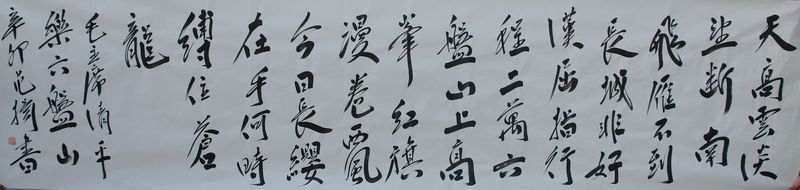 天高雲淡
望断南
飛雁不到
長城非好
漢屈指行
程二萬六
盤山上高
峯紅旗
漫卷西風
今日長纓
在手何時
縛住蒼
龍
毛主席清平
樂六盤山
辛卯書